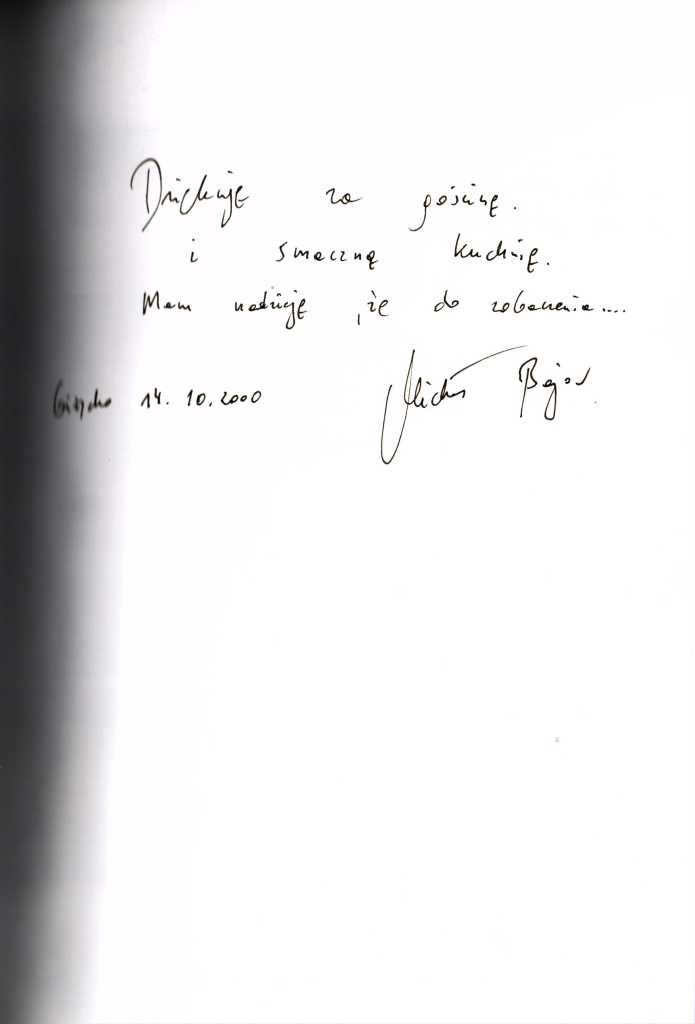 Dziękuję za gościnę.
i smaczną kuchnię.
Mam nadzieję, że do zobaczenia....
Giżycko 14.10.2000 Michał Bajor